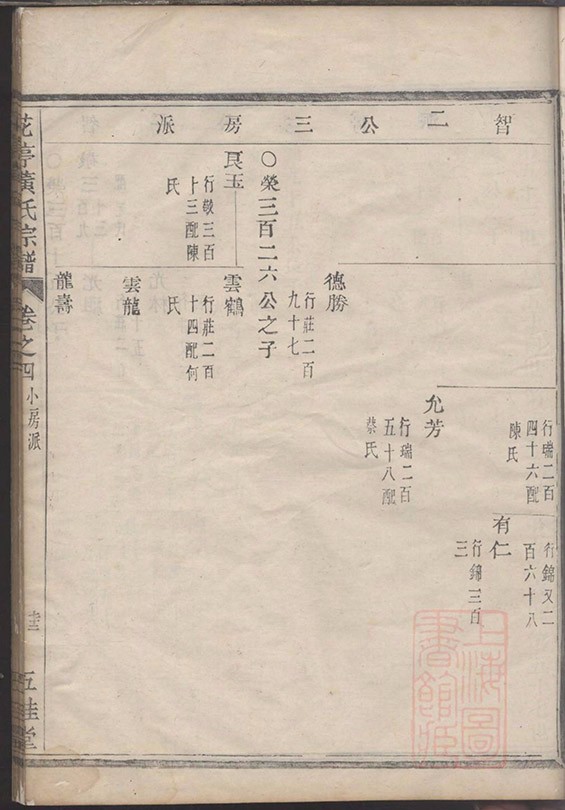 智二公三房派
行瑞二百
四十六配
陳氏
行錦又二
百六十八
有仁
行錦三百
三
允芳
行瑞二百
五十八配
蔡氏
德勝
行莊二百
九十七
○榮三百二六公之子
良玉
行敬三百
十三配陳
氏
雲鶴
行莊二百
十四配何
氏
雲龍
龍壽
花亭黃氏宗譜
卷之四
小房派
五桂堂
上海圖
書館藏